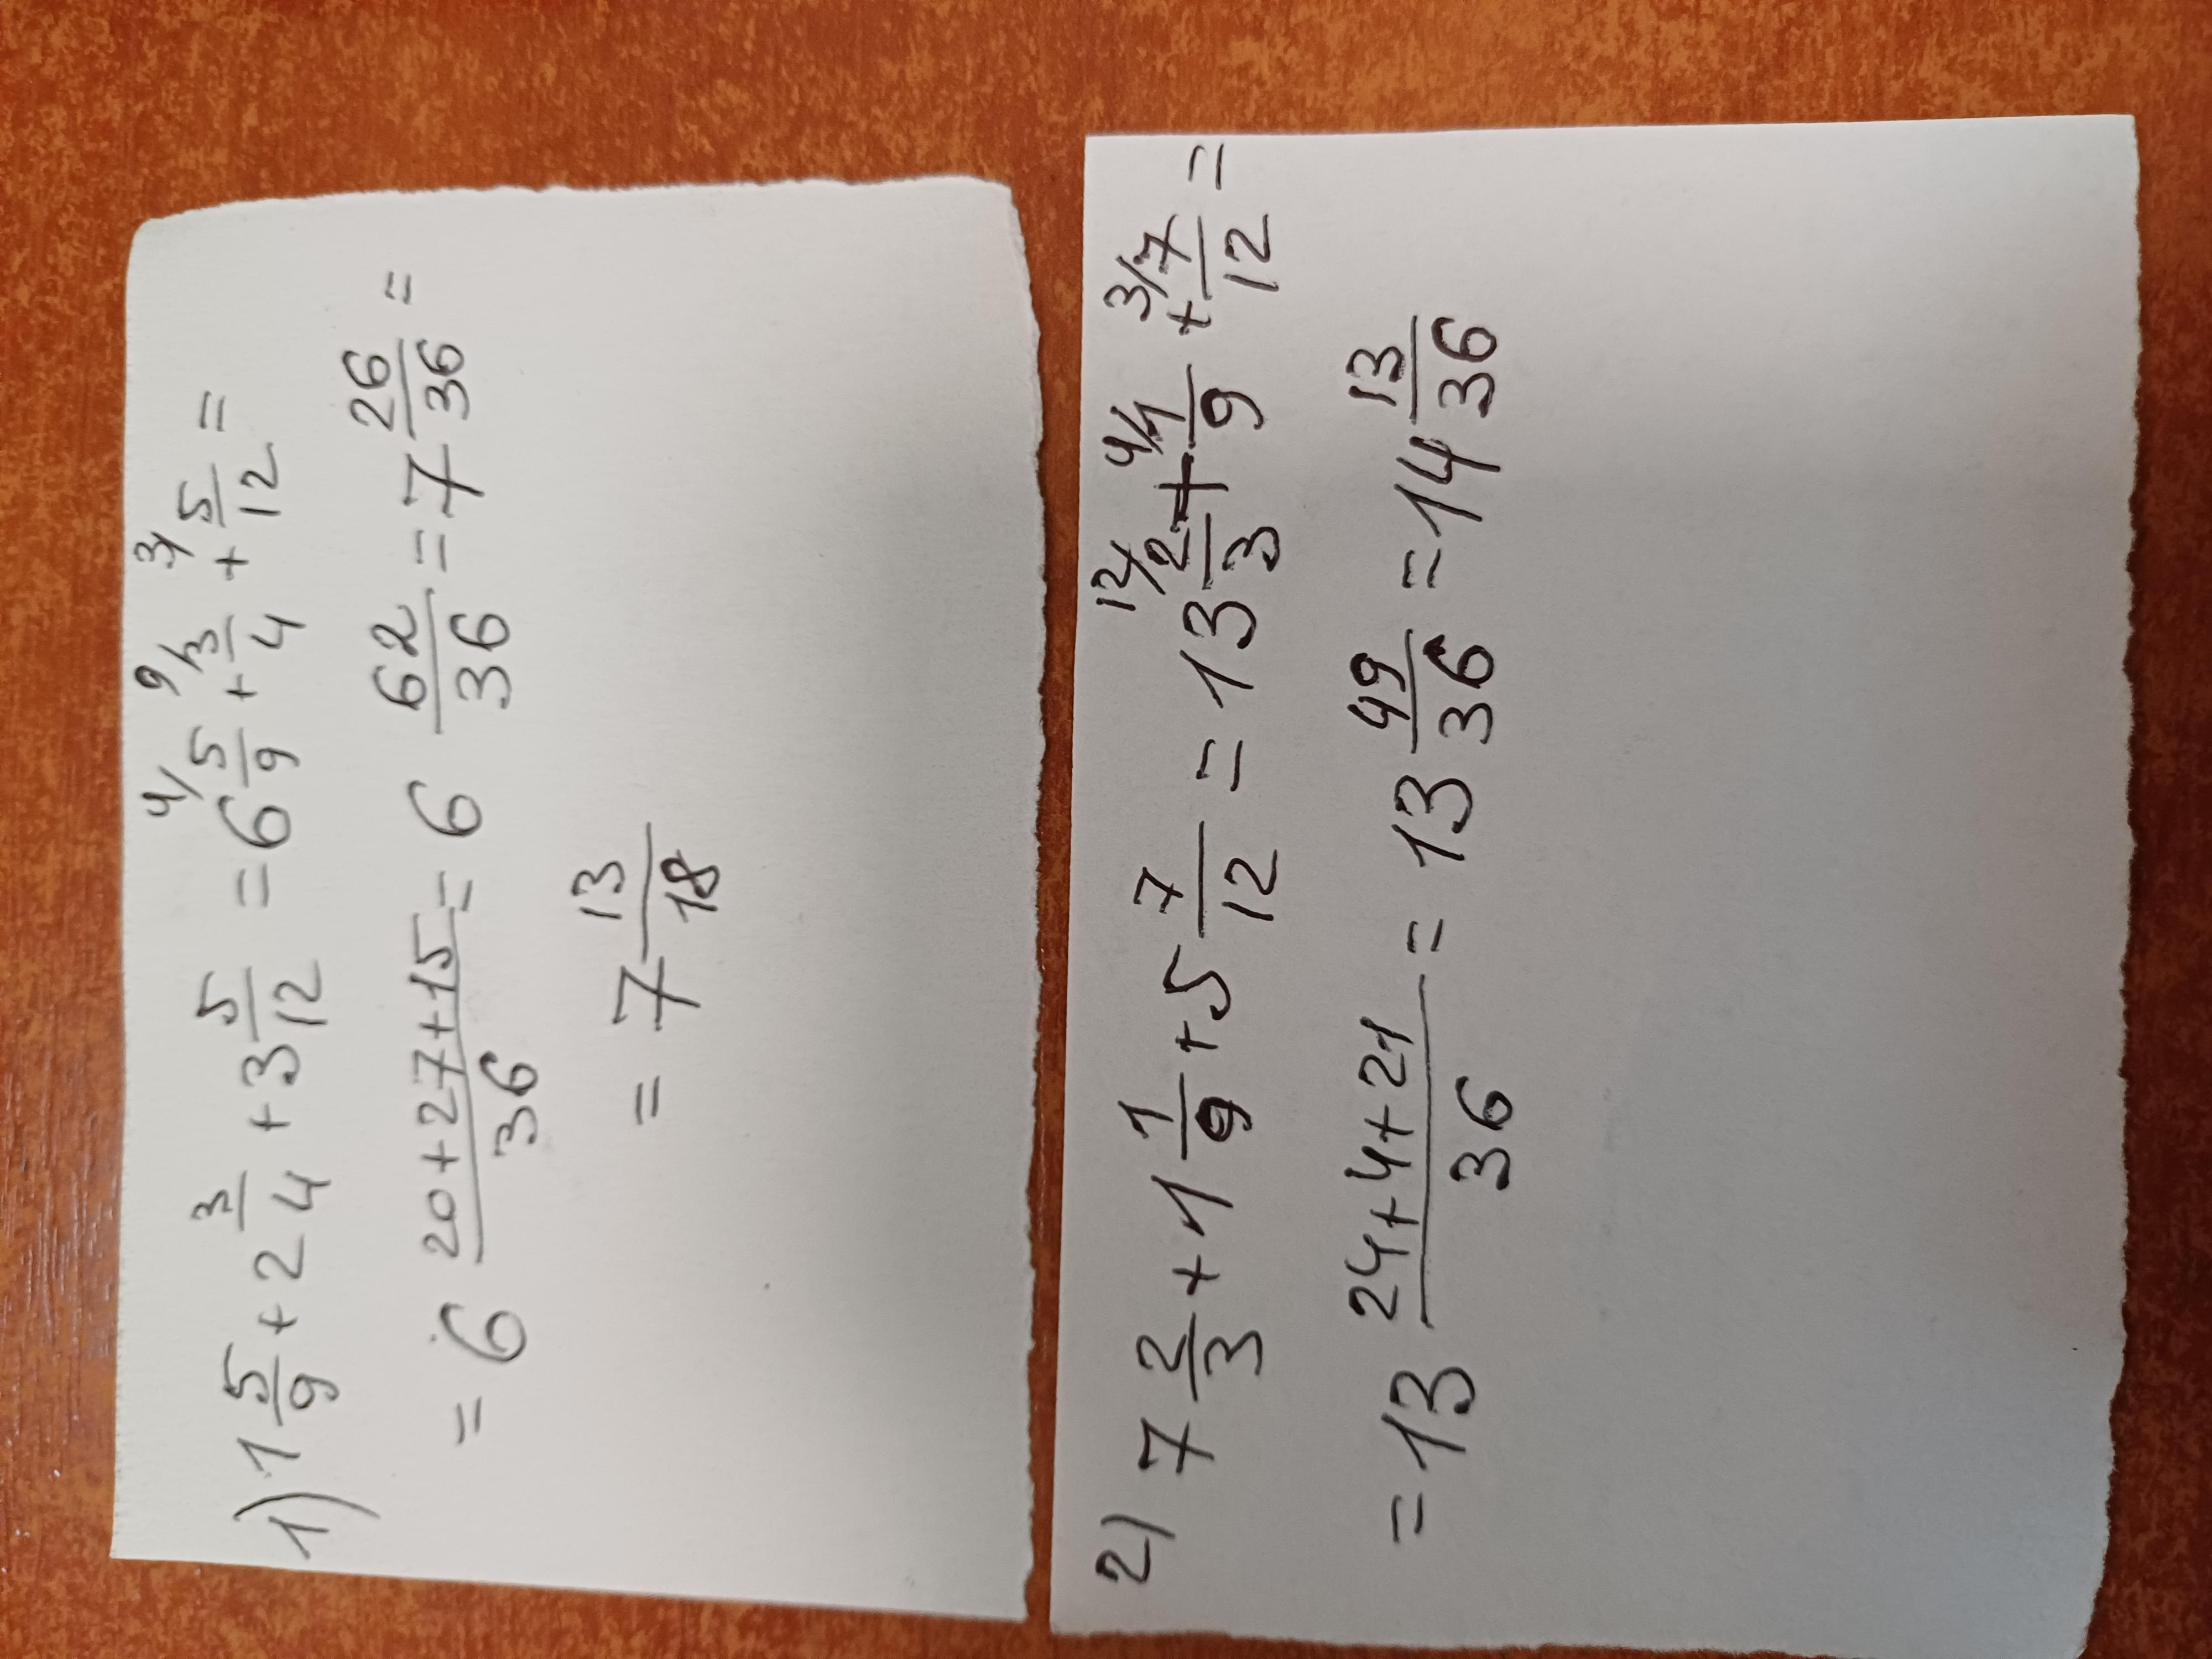 1) 1 5/9 + 2 3/4 + 3 5/12 = 6 4/ 5/9 + 9/ 3/4 + 3/ 5/12 =
= 6 (20+27+15)/36 = 6 62/36 = 7 26/36 =
= 7 13/18
2) 7 2/3 + 1 1/9 + 5 7/12 = 13 12/ 2/3 + 4/ 1/9 + 3/ 7/12 =
= 13 (24+4+21)/36 = 13 49/36 = 14 13/36